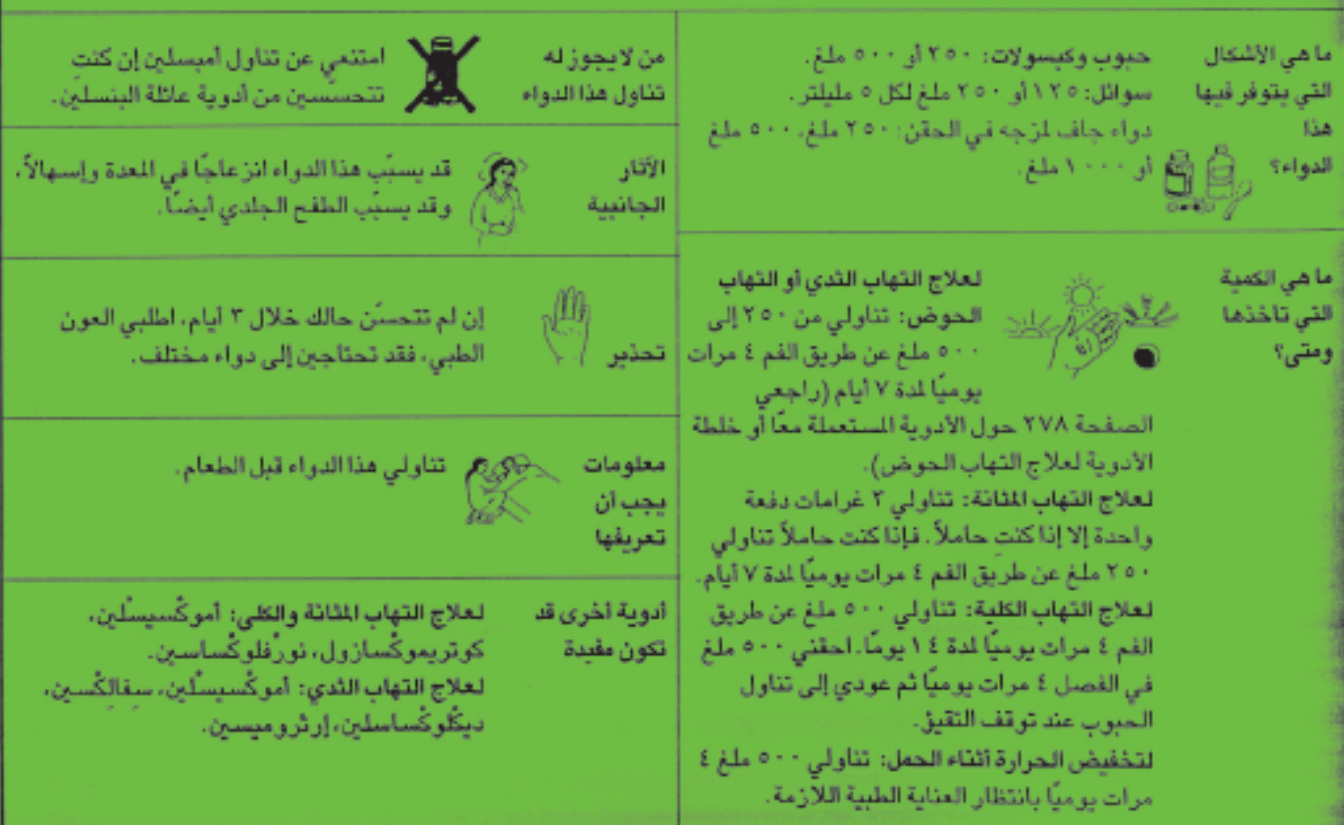 ما هي الأشكال
التي يتوفر فيها
هذا
الدواء؟
حبوب وكبسولات: ٢٥٠ أو ٥٠٠ ملغ.
سوائل: ١٢٥ أو ٢٥٠ ملغ لكل ٥ مليلتر.
دواء جاف لمزجه في الحقن: ٢٥٠ ملغ، ٥٠٠ ملغ
أو ١٠٠٠ ملغ.
ما هي الكمية
التي تأخذها
ومتى؟
لعلاج التهاب الثدي أو التهاب
الحوض: تناولي من ٢٥٠ إلى
٥٠٠ ملغ عن طريق الفم ٤ مرات
يوميًا لمدة ٧ أيام (راجعي
الصفحة ٢٧٨ حول الأدوية المستعملة معًا أو خلطة
الأدوية لعلاج التهاب الحوض).
لعلاج التهاب المثانة: تناولي ٣ غرامات دفعة
واحدة إلا إذا كنتِ حاملاً. فإذا كنت حاملاً تناولي
٢٥٠ ملغ عن طريق الفم ٤ مرات يوميًا لمدة ٧ أيام.
لعلاج التهاب الكلية: تناولي ٥٠٠ ملغ عن طريق
الفم ٤ مرات يوميًا لمدة ١٤ يومًا. احقني ٥٠٠ ملغ
في الفصل ٤ مرات يوميًا ثم عودي إلى تناول
الحبوب عند توقف التقيؤ.
لتخفيض الحرارة أثناء الحمل: تناولي ٥٠٠ ملغ ٤
مرات يوميًا بانتظار العناية الطبية اللازمة.
من لا يجوز له
تناول هذا الدواء
امتنعي عن تناول أمبسلين إن كنتِ
تتحسّسين من أدوية عائلة البنسلين.
الآثار
الجانبية
قد يسبّب هذا الدواء انزعاجًا في المعدة وإسهالاً،
وقد يسبّب الطفح الجلدي أيضًا.
تحذير
إن لم تتحسّن حالك خلال ٣ أيام، اطلبي العون
الطبي، فقد تحتاجين إلى دواء مختلف.
معلومات
يجب أن
تعريفها
تناولي هذا الدواء قبل الطعام.
أدوية أخرى قد
تكون مفيدة
لعلاج التهاب المثانة والكلى: أموكْسيسلّين،
كوتريموكْسازول، نورْفلوكْساسين.
لعلاج التهاب الثدي: أموكْسيسلّين، سِفالِكْسين،
ديكْلوكْساسلين، إرثروميسين.